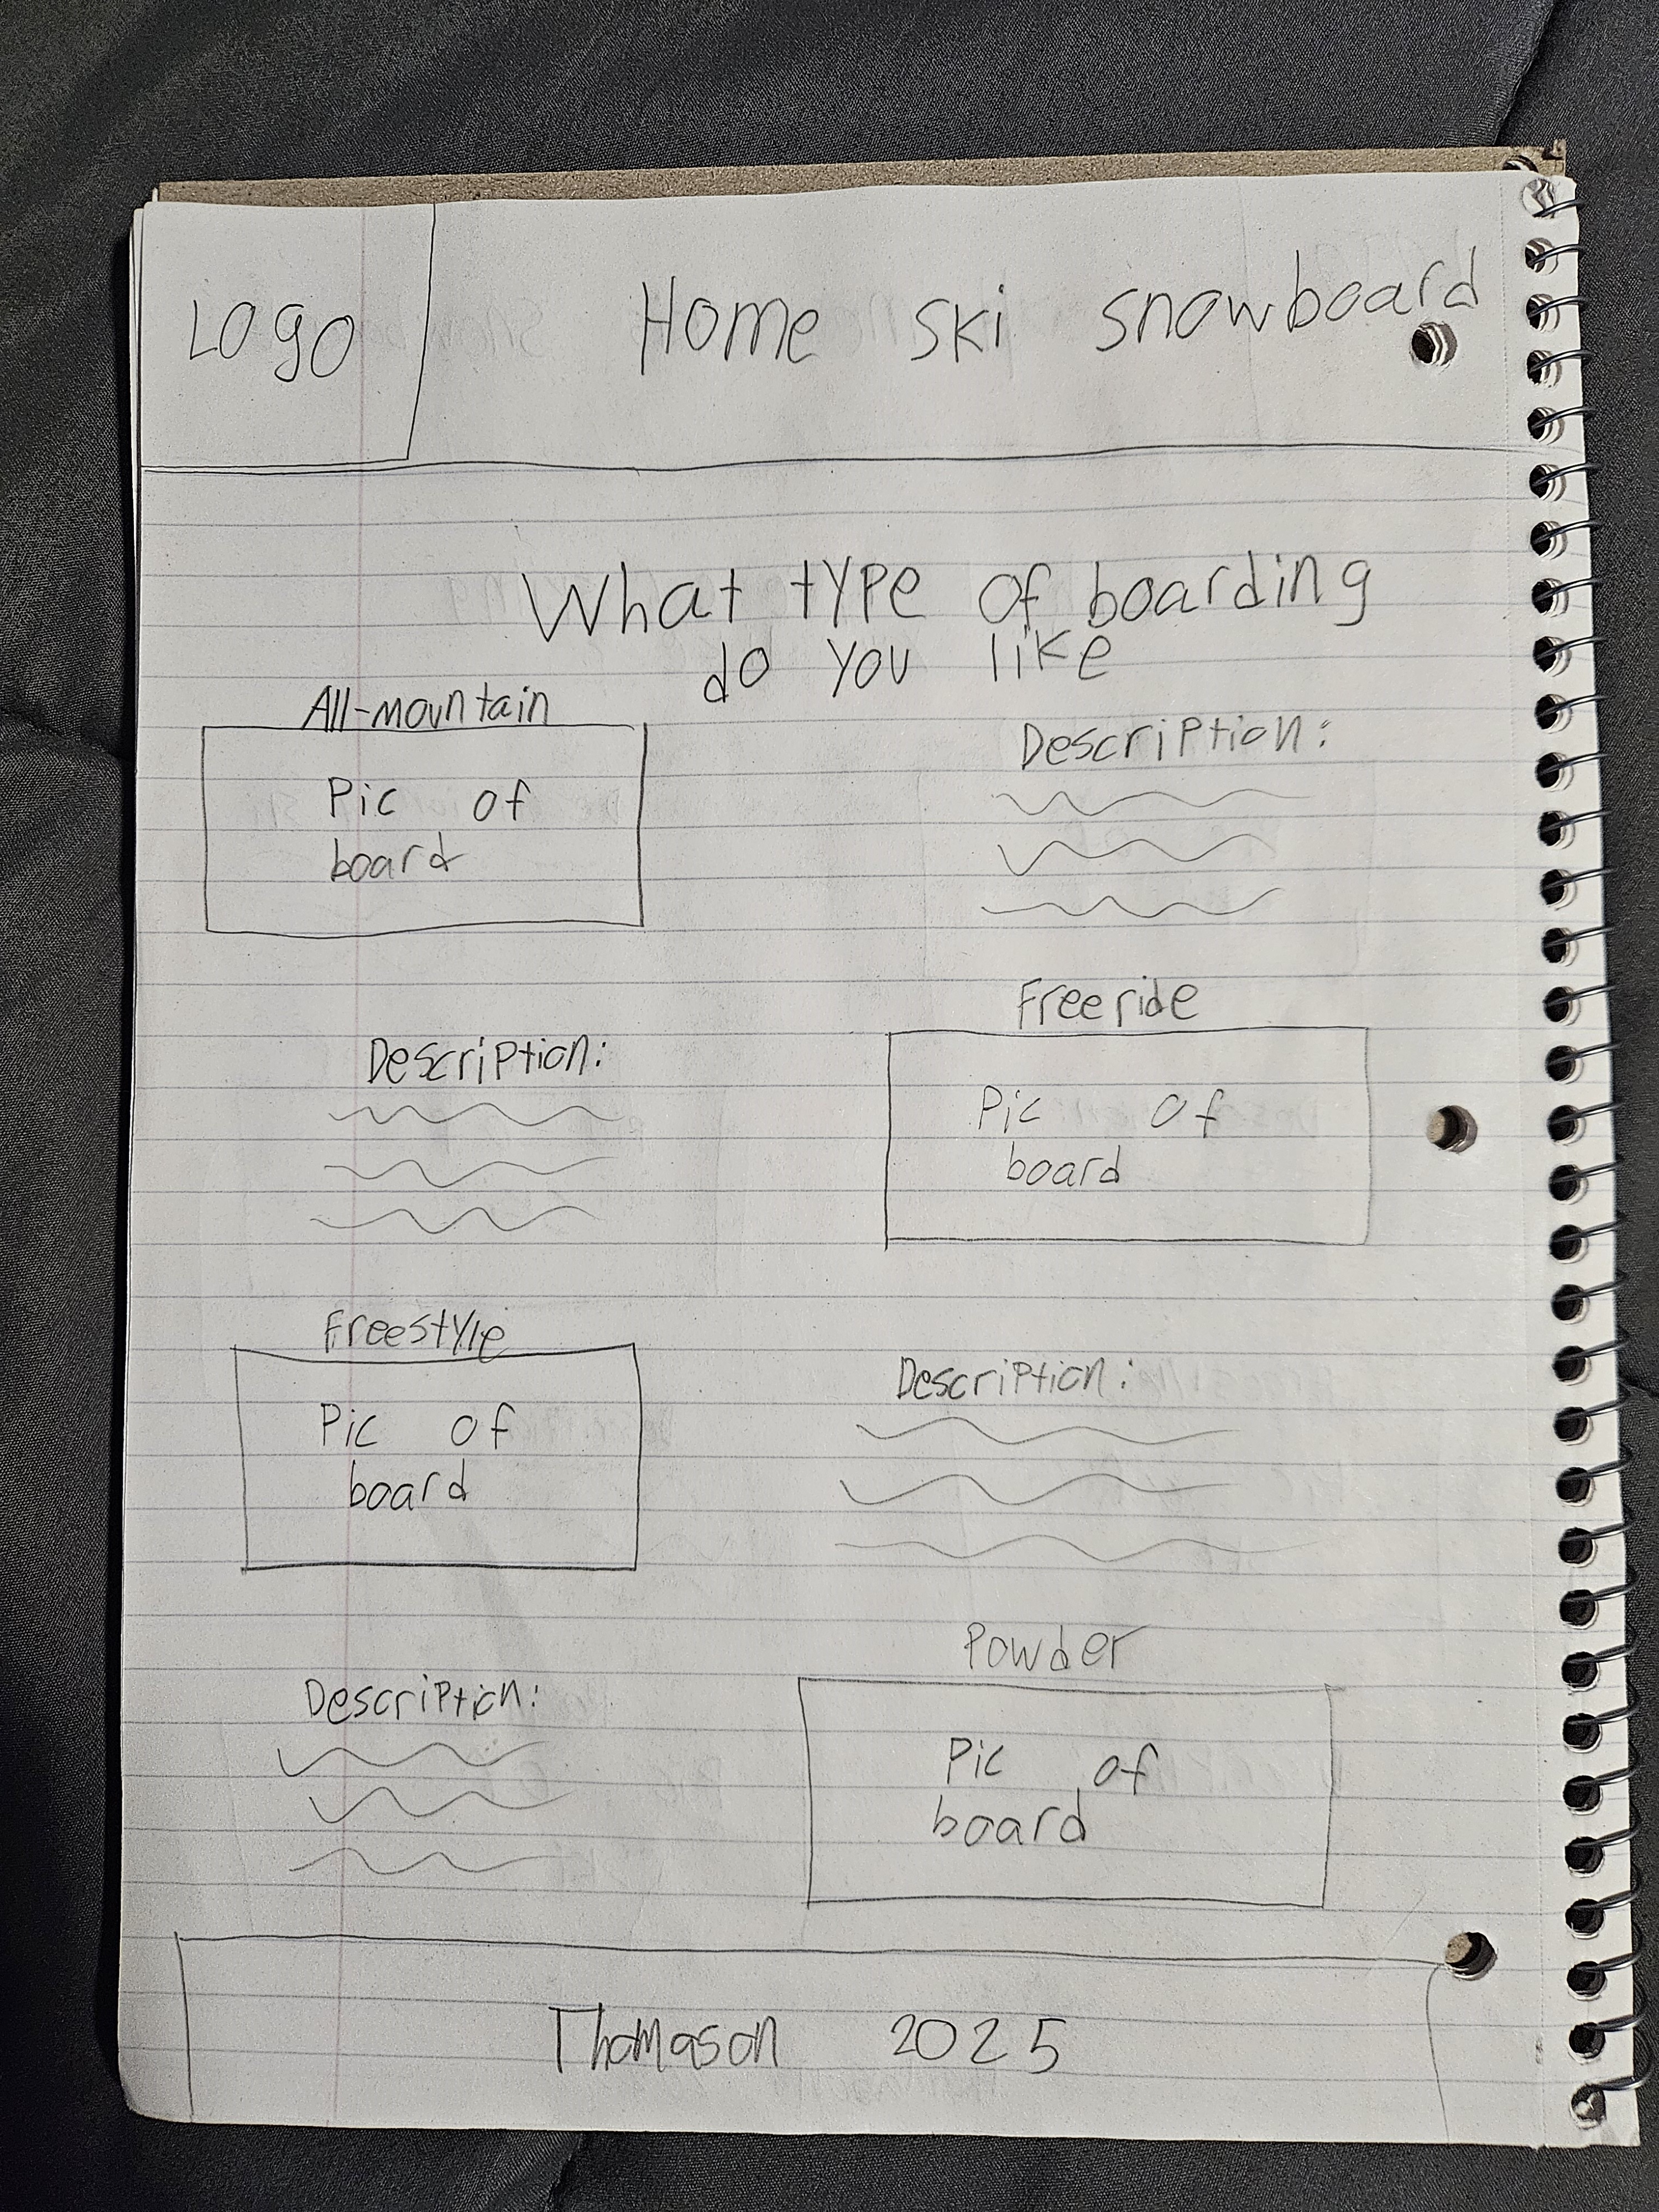 Logo
Home ski snowboard
What type of boarding
do you like
All-mountain
Pic of
board
Description:
Freeride
Description:
Pic of
board
Freestyle
Pic of
board
Description:
Powder
Description:
Pic of
board
Thomason 2025